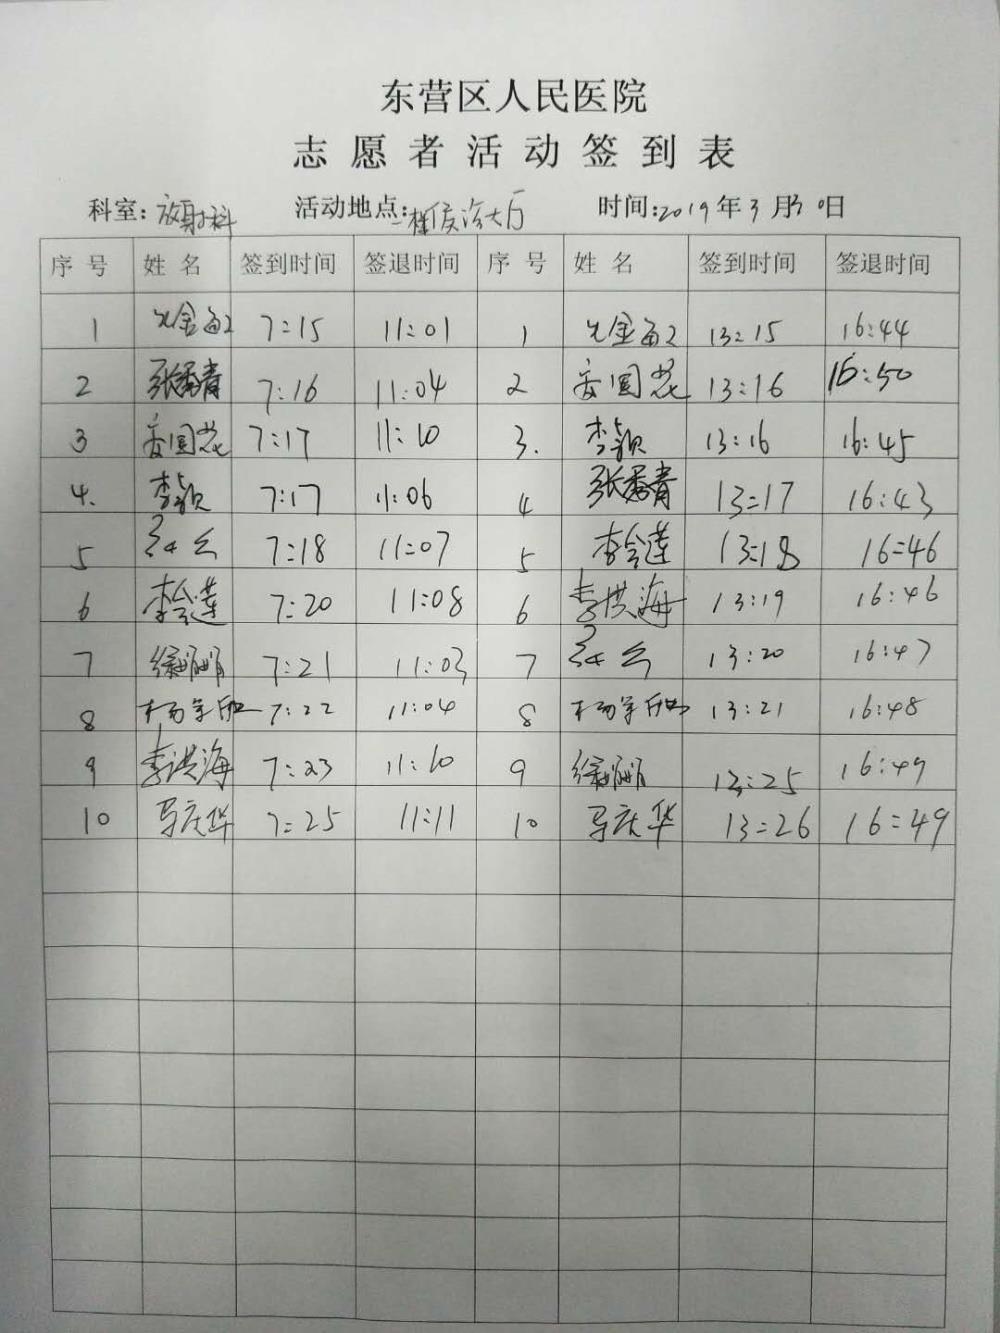 东营区人民医院
志愿者活动签到表
科室:放射科 活动地点:一楼候诊大厅 时间:2019年3月30日
序号 姓名 签到时间 签退时间 序号 姓名 签到时间 签退时间
1 7:15 11:01 1 13:15 16:44
2 张秀青 7:16 11:04 2 安国花 13:16 16:50
3 安国花 7:17 11:10 3. 李颖 13:16 16:45
4. 李颖 7:17 11:06 4 张秀青 13:17 16:43
5 7:18 11:07 5 李会莲 13:18 16:46
6 李会莲 7:20 11:08 6 李洪海 13:19 16:46
7 徐丽丽 7:21 11:03 7 13:20 16:47
8 杨 7:22 11:04 8 杨 13:21 16:48
9 李洪海 7:23 11:10 9 徐丽丽 13:25 16:49
10 马庆华 7:25 11:11 10 马庆华 13:26 16:49